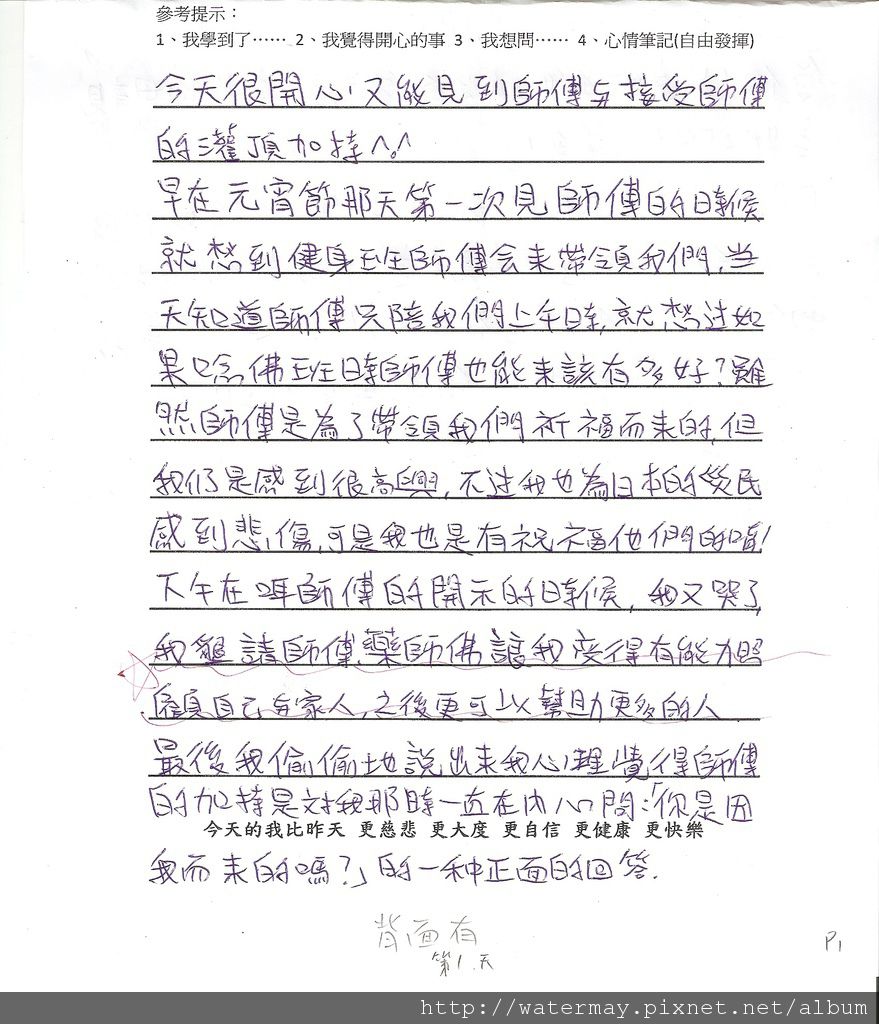 參考提示：
1、我學到了⋯⋯ 2、我覺得開心的事 3、我想問⋯⋯ 4、心情筆記(自由發揮)
今天很開心又能見到師傅与接受師傅
的灌頂加持^o^
早在元宵節那天第一次見師傅的時候
就想到健身班師傅会来帶領我們,当
天知道師傅只陪我們上午時,就想过如
果唸佛班時師傅也能来該有多好?雖
然師傅是為了帶領我們祈福而来的,但
我们是感到很高興,不过我也為日本的災民
感到悲傷,可是我也是有祝福他們的唷!
下午在 師傅的開示的時候,我又哭了,
我懇請師傅、藥師佛讓我变得有能力照
顧自己与家人,之後更可以幫助更多的人
最後我偷偷地說出来我心裡覺得師傅
的加持是对我那時一直在内心問:「你是因
今天的我比昨天 更慈悲 更大度 更自信 更健康 更快樂
我而来的嗎?」的一种正面的回答.
背面有
第1天
P1
http://watermay.pixnet.net/album